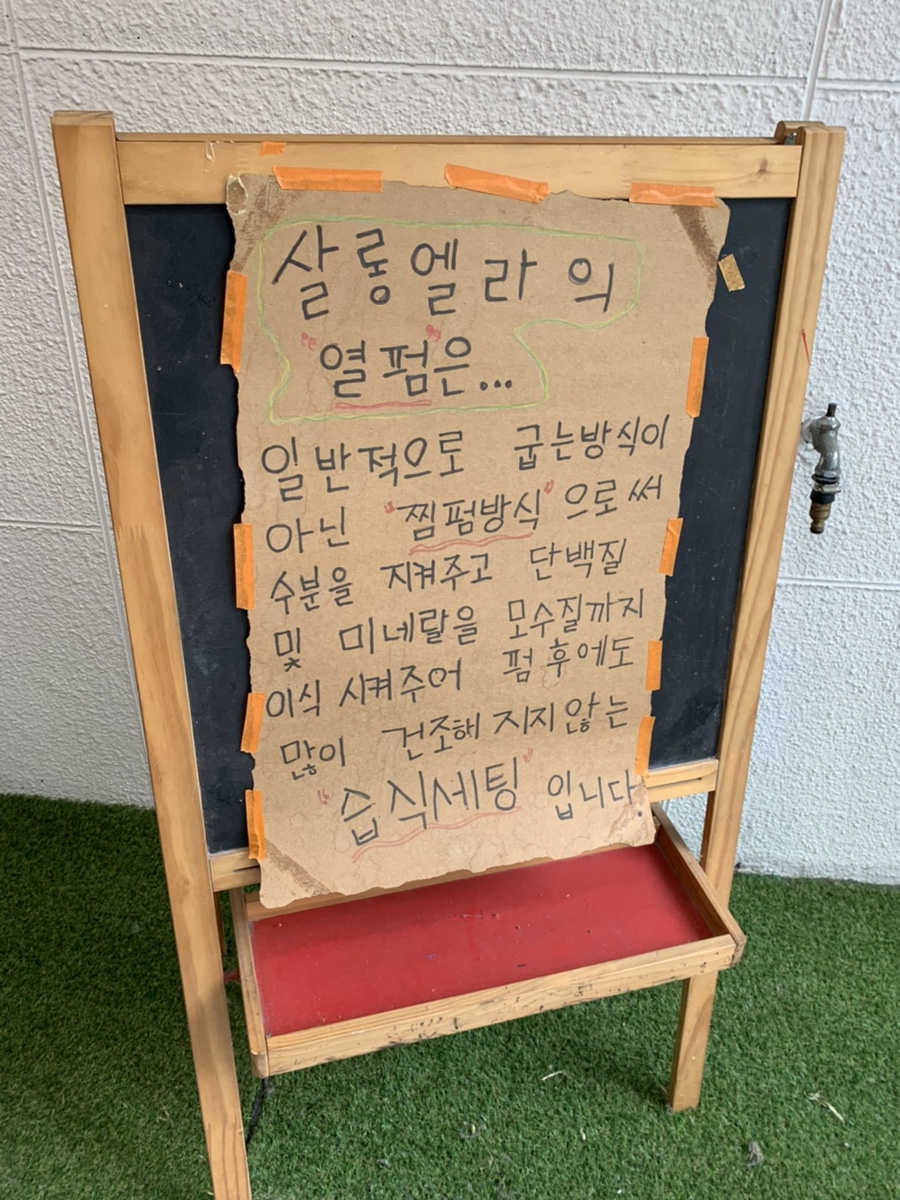 살롱엘라의
"열펌"은...
일반적으로 굽는방식이
아닌 "찜펌방식"으로써
수분을 지켜주고 단백질
및 미네랄을 모수질까지
이식 시켜주어 펌 후에도
많이 건조해 지지않는
"습식세팅" 입니다.